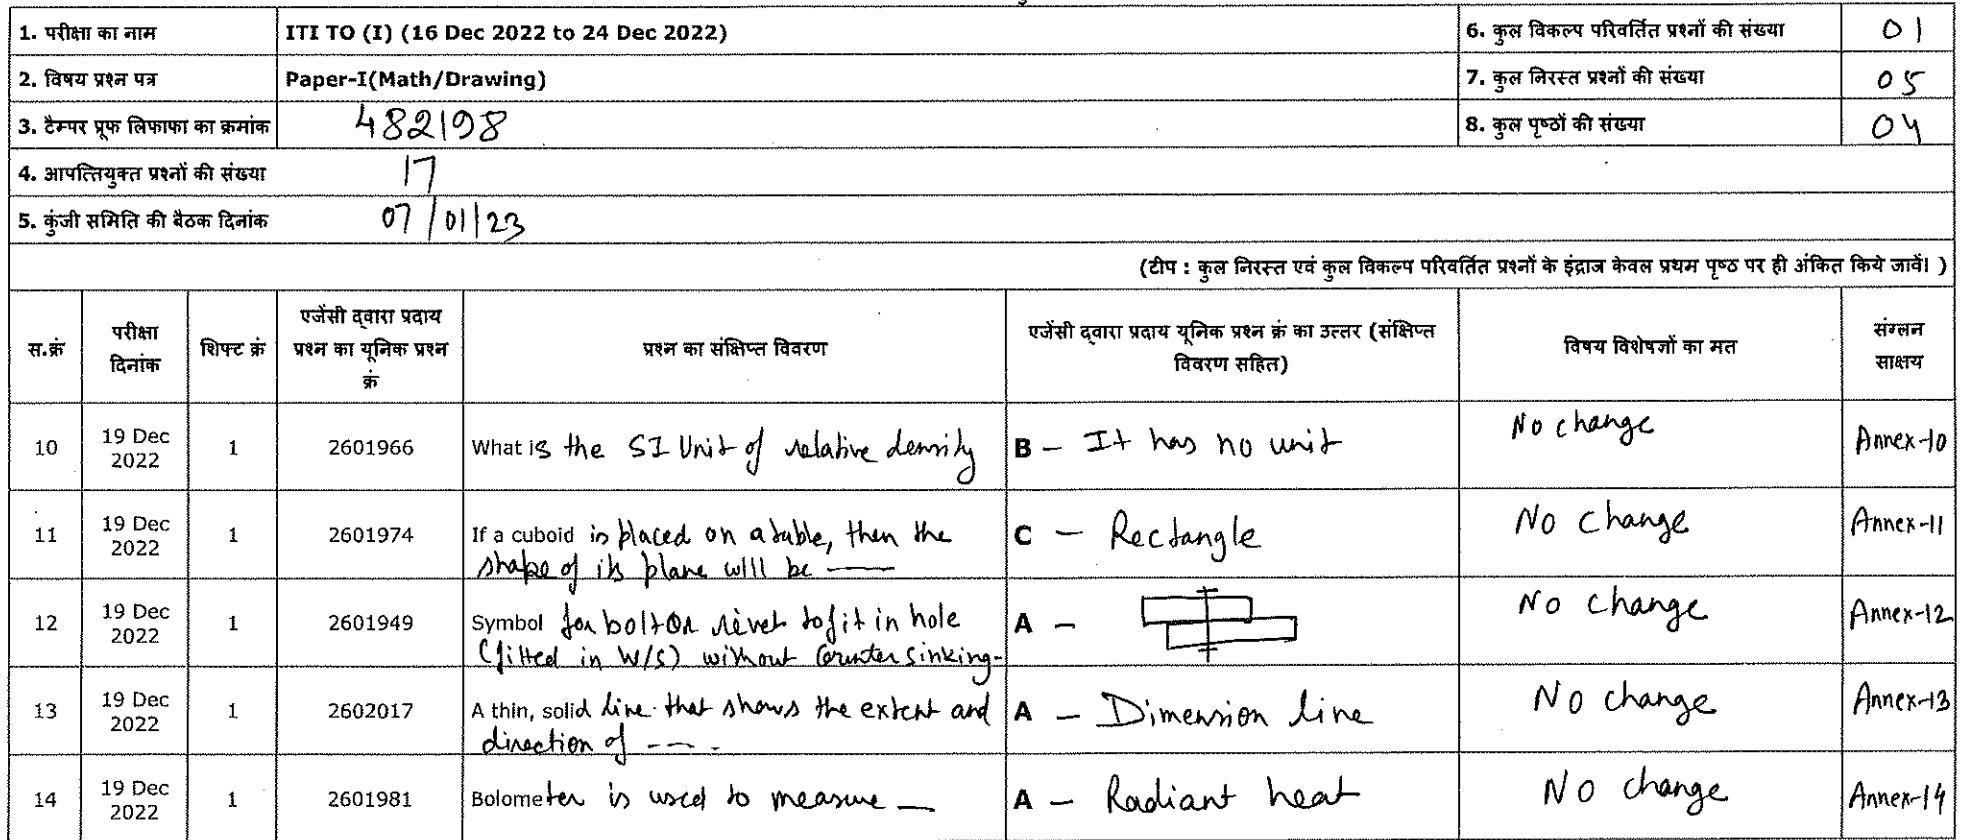 1. परीक्षा का नाम ITI TO (I) (16 Dec 2022 to 24 Dec 2022) 6. कुल विकल्प परिवर्तित प्रश्नों की संख्या 01
2. विषय प्रश्न पत्र Paper-I(Math/Drawing) 7. कुल निरस्त प्रश्नों की संख्या 05
3. टैम्पर प्रूफ लिफाफा का क्रमांक 482198 8. कुल पृष्ठों की संख्या 04
4. आपत्तियुक्त प्रश्नों की संख्या 17
5. कुंजी समिति की बैठक दिनांक 07/01/23
(टीप : कुल निरस्त एवं कुल विकल्प परिवर्तित प्रश्नों के इंद्राज केवल प्रथम पृष्ठ पर ही अंकित किये जावें। )
स.क्रं
परीक्षा
दिनांक
शिफ्ट क्रं
एजेंसी द्वारा प्रदाय
प्रश्न का यूनिक प्रश्न
क्रं
प्रश्न का संक्षिप्त विवरण
एजेंसी द्वारा प्रदाय यूनिक प्रश्न क्रं का उत्तर (संक्षिप्त
विवरण सहित)
विषय विशेषज्ञों का मत
संग्लन
साक्षय
10
19 Dec
2022
1
2601966
What is the SI Unit of relative density
B – It has no unit
No change
Annex-10
11
19 Dec
2022
1
2601974
If a cuboid is placed on a table, then the
shape of its plane will be ——
C – Rectangle
No change
Annex-11
12
19 Dec
2022
1
2601949
Symbol for bolt or rivet to fit in hole
(fitted in W/S) without Counter sinking-
A –
No change
Annex-12
13
19 Dec
2022
1
2602017
A thin, solid line that shows the extent and
direction of ---.
A – Dimension line
No change
Annex-13
14
19 Dec
2022
1
2601981
Bolometer is used to measure —
A – Radiant heat
No change
Annex-14